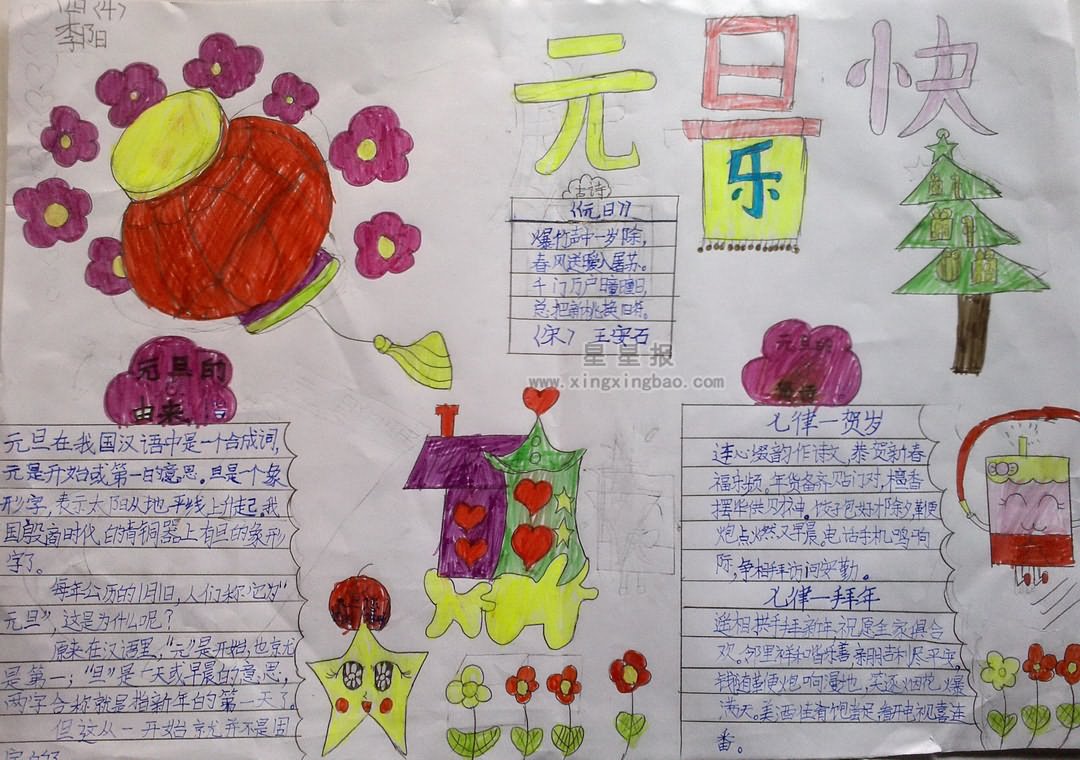 四〈4〉
李阳
元旦快
乐
古诗
《元日》
爆竹声中一岁除，
春风送暖入屠苏。
千门万户曈曈日，
总把新桃换旧符。
〈宋〉 王安石
星星报
www.xingxingbao.com
元旦的
由来
元旦在我国汉语中是一个合成词，
元是开始或第一日意思。旦是一个象
形字，表示太阳从地平线上升起。我
国殷商时代的青铜器上有旦的象形
字了。
每年公历的1月1日，人们称它为“
元旦”，这是为什么呢？
原来在汉语里，“元”是开始，也
是第一；“旦”是一天或早晨的意思，
两字合称就是指新年的第一天了
但这从一开始 并不是固
元旦的
七律一贺岁
连心缀韵作诗文，恭贺新春
福乐频。年货备齐贴门对，檀香
摆华供财神。饺子包好除夕
炮点燃又早晨。电话手机鸣响
际，争相拜访问安勤。
七律一拜年
遥相拱手拜新年，祝愿全家俱合
欢。邻里祥和谐乐善，亲朋吉利尽平安，
炮响漫地，笑逐烟花爆
满天。美酒佳肴饱尝足，看电视喜连
番。